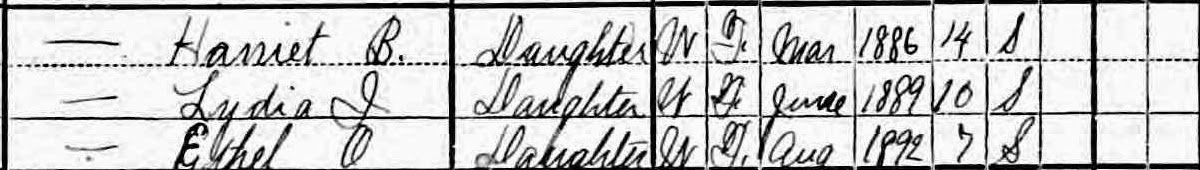 — Harriet B. Daughter W F. Mar 1886 14 S
— Lydia J Daughter W F. June 1889 10 S
— Ethel O Daughter W F. Aug 1892 7 S